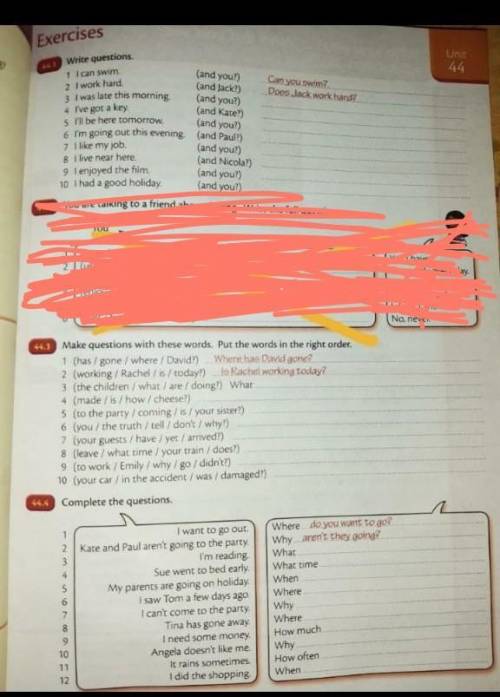 Exercises
Unit
44
44.1 Write questions.
1 I can swim. (and you?) Can you swim?
2 I work hard. (and Jack?) Does Jack work hard?
3 I was late this morning. (and you?)
4 I've got a key. (and Kate?)
5 I'll be here tomorrow. (and you?)
6 I'm going out this evening. (and Paul?)
7 I like my job. (and you?)
8 I live near here. (and Nicola?)
9 I enjoyed the film. (and you?)
10 I had a good holiday. (and you?)
talking to a friend
You
No, never.
44.3 Make questions with these words. Put the words in the right order.
1 (has / gone / where / David?) Where has David gone?
2 (working / Rachel / is / today?) Is Rachel working today?
3 (the children / what / are / doing?) What
4 (made / is / how / cheese?)
5 (to the party / coming / is / your sister?)
6 (you / the truth / tell / don't / why?)
7 (your guests / have / yet / arrived?)
8 (leave / what time / your train / does?)
9 (to work / Emily / why / go / didn't?)
10 (your car / in the accident / was / damaged?)
44.4 Complete the questions.
1 I want to go out. Where do you want to go?
2 Kate and Paul aren't going to the party. Why aren't they going?
3 I'm reading. What
4 Sue went to bed early. What time
5 My parents are going on holiday. When
6 I saw Tom a few days ago. Where
7 I can't come to the party. Why
8 Tina has gone away. Where
9 I need some money. How much
10 Angela doesn't like me. Why
11 It rains sometimes. How often
12 I did the shopping. When